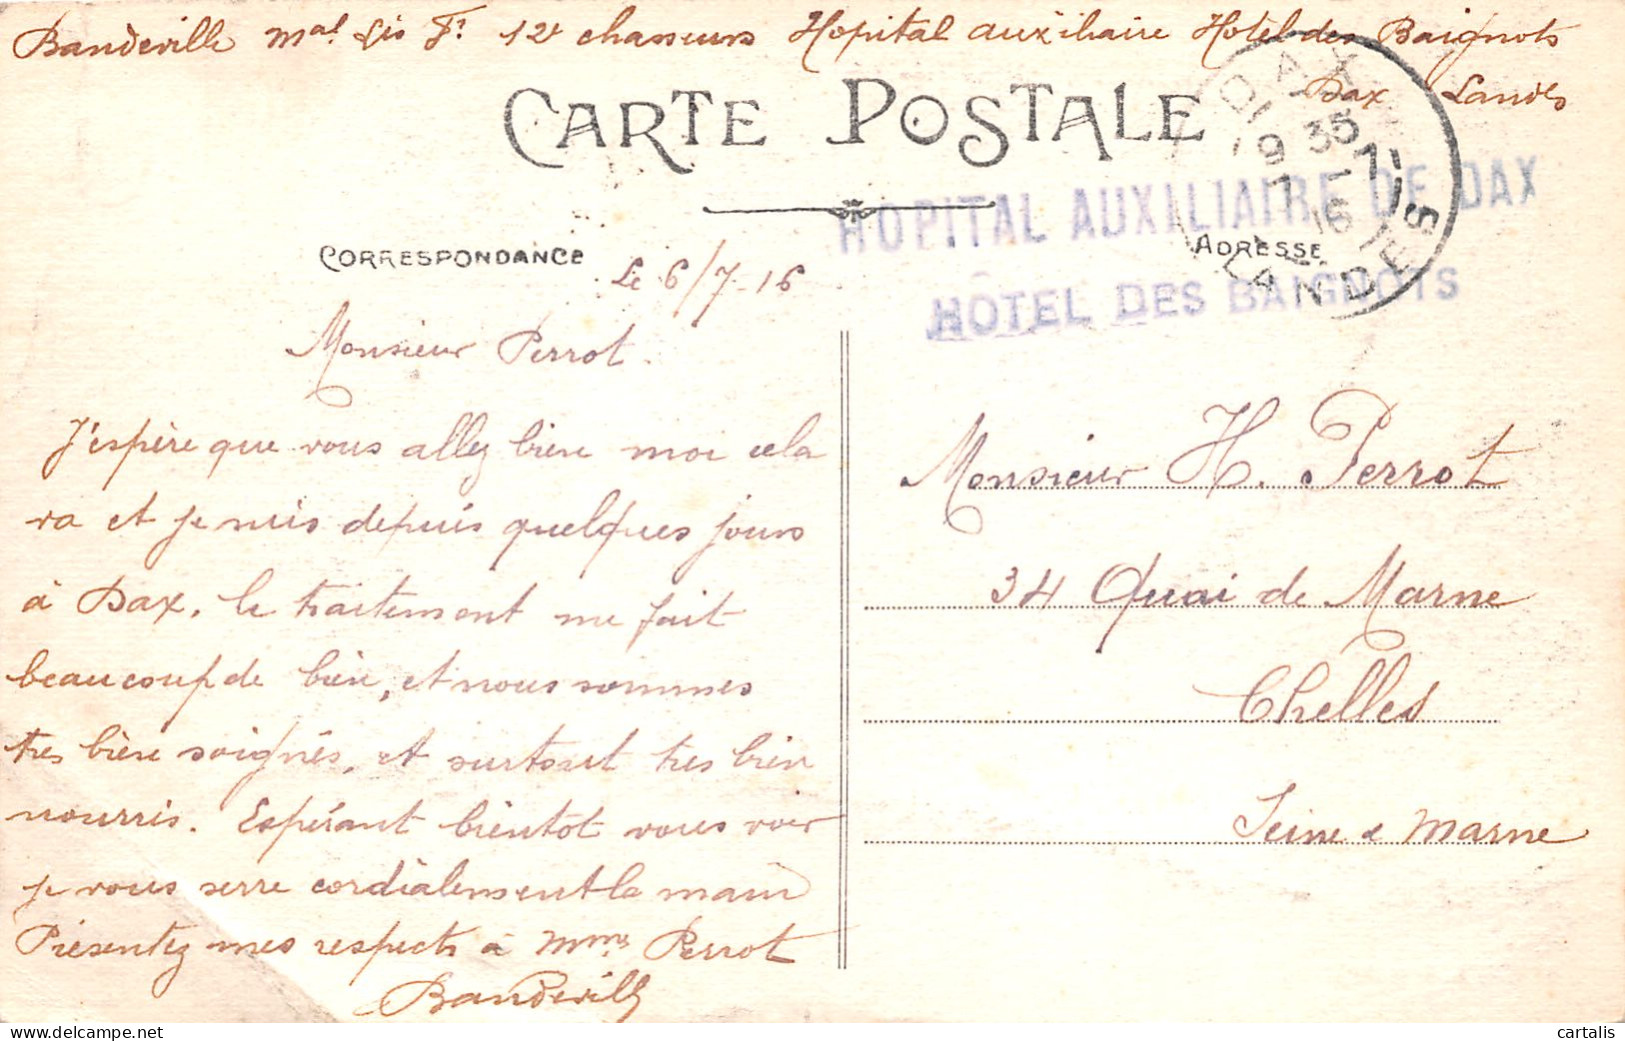 Bandeville Mal lis Fr 12e chasseurs Hopital auxiliaire Hotel des Baignots
Dax Landes
CARTE POSTALE
HOPITAL AUXILIAIRE DE DAX
HOTEL DES BAIGNOTS
DAX
LANDES
CORRESPONDANCE
ADRESSE
Le 6/7-16
Monsieur Perrot.
J'espère que vous allez bien moi cela
va et je suis depuis quelques jours
à Dax, le traitement me fait
beaucoup de bien, et nous sommes
très bien soignés, et surtout très bien
nourris. Espérant bientot vous voir
je vous serre cordialement la main
Présentez mes respects à Mme Perrot
Bandeville
Monsieur H. Perrot
34 Quai de Marne
Chelles
Seine & Marne
cartalis